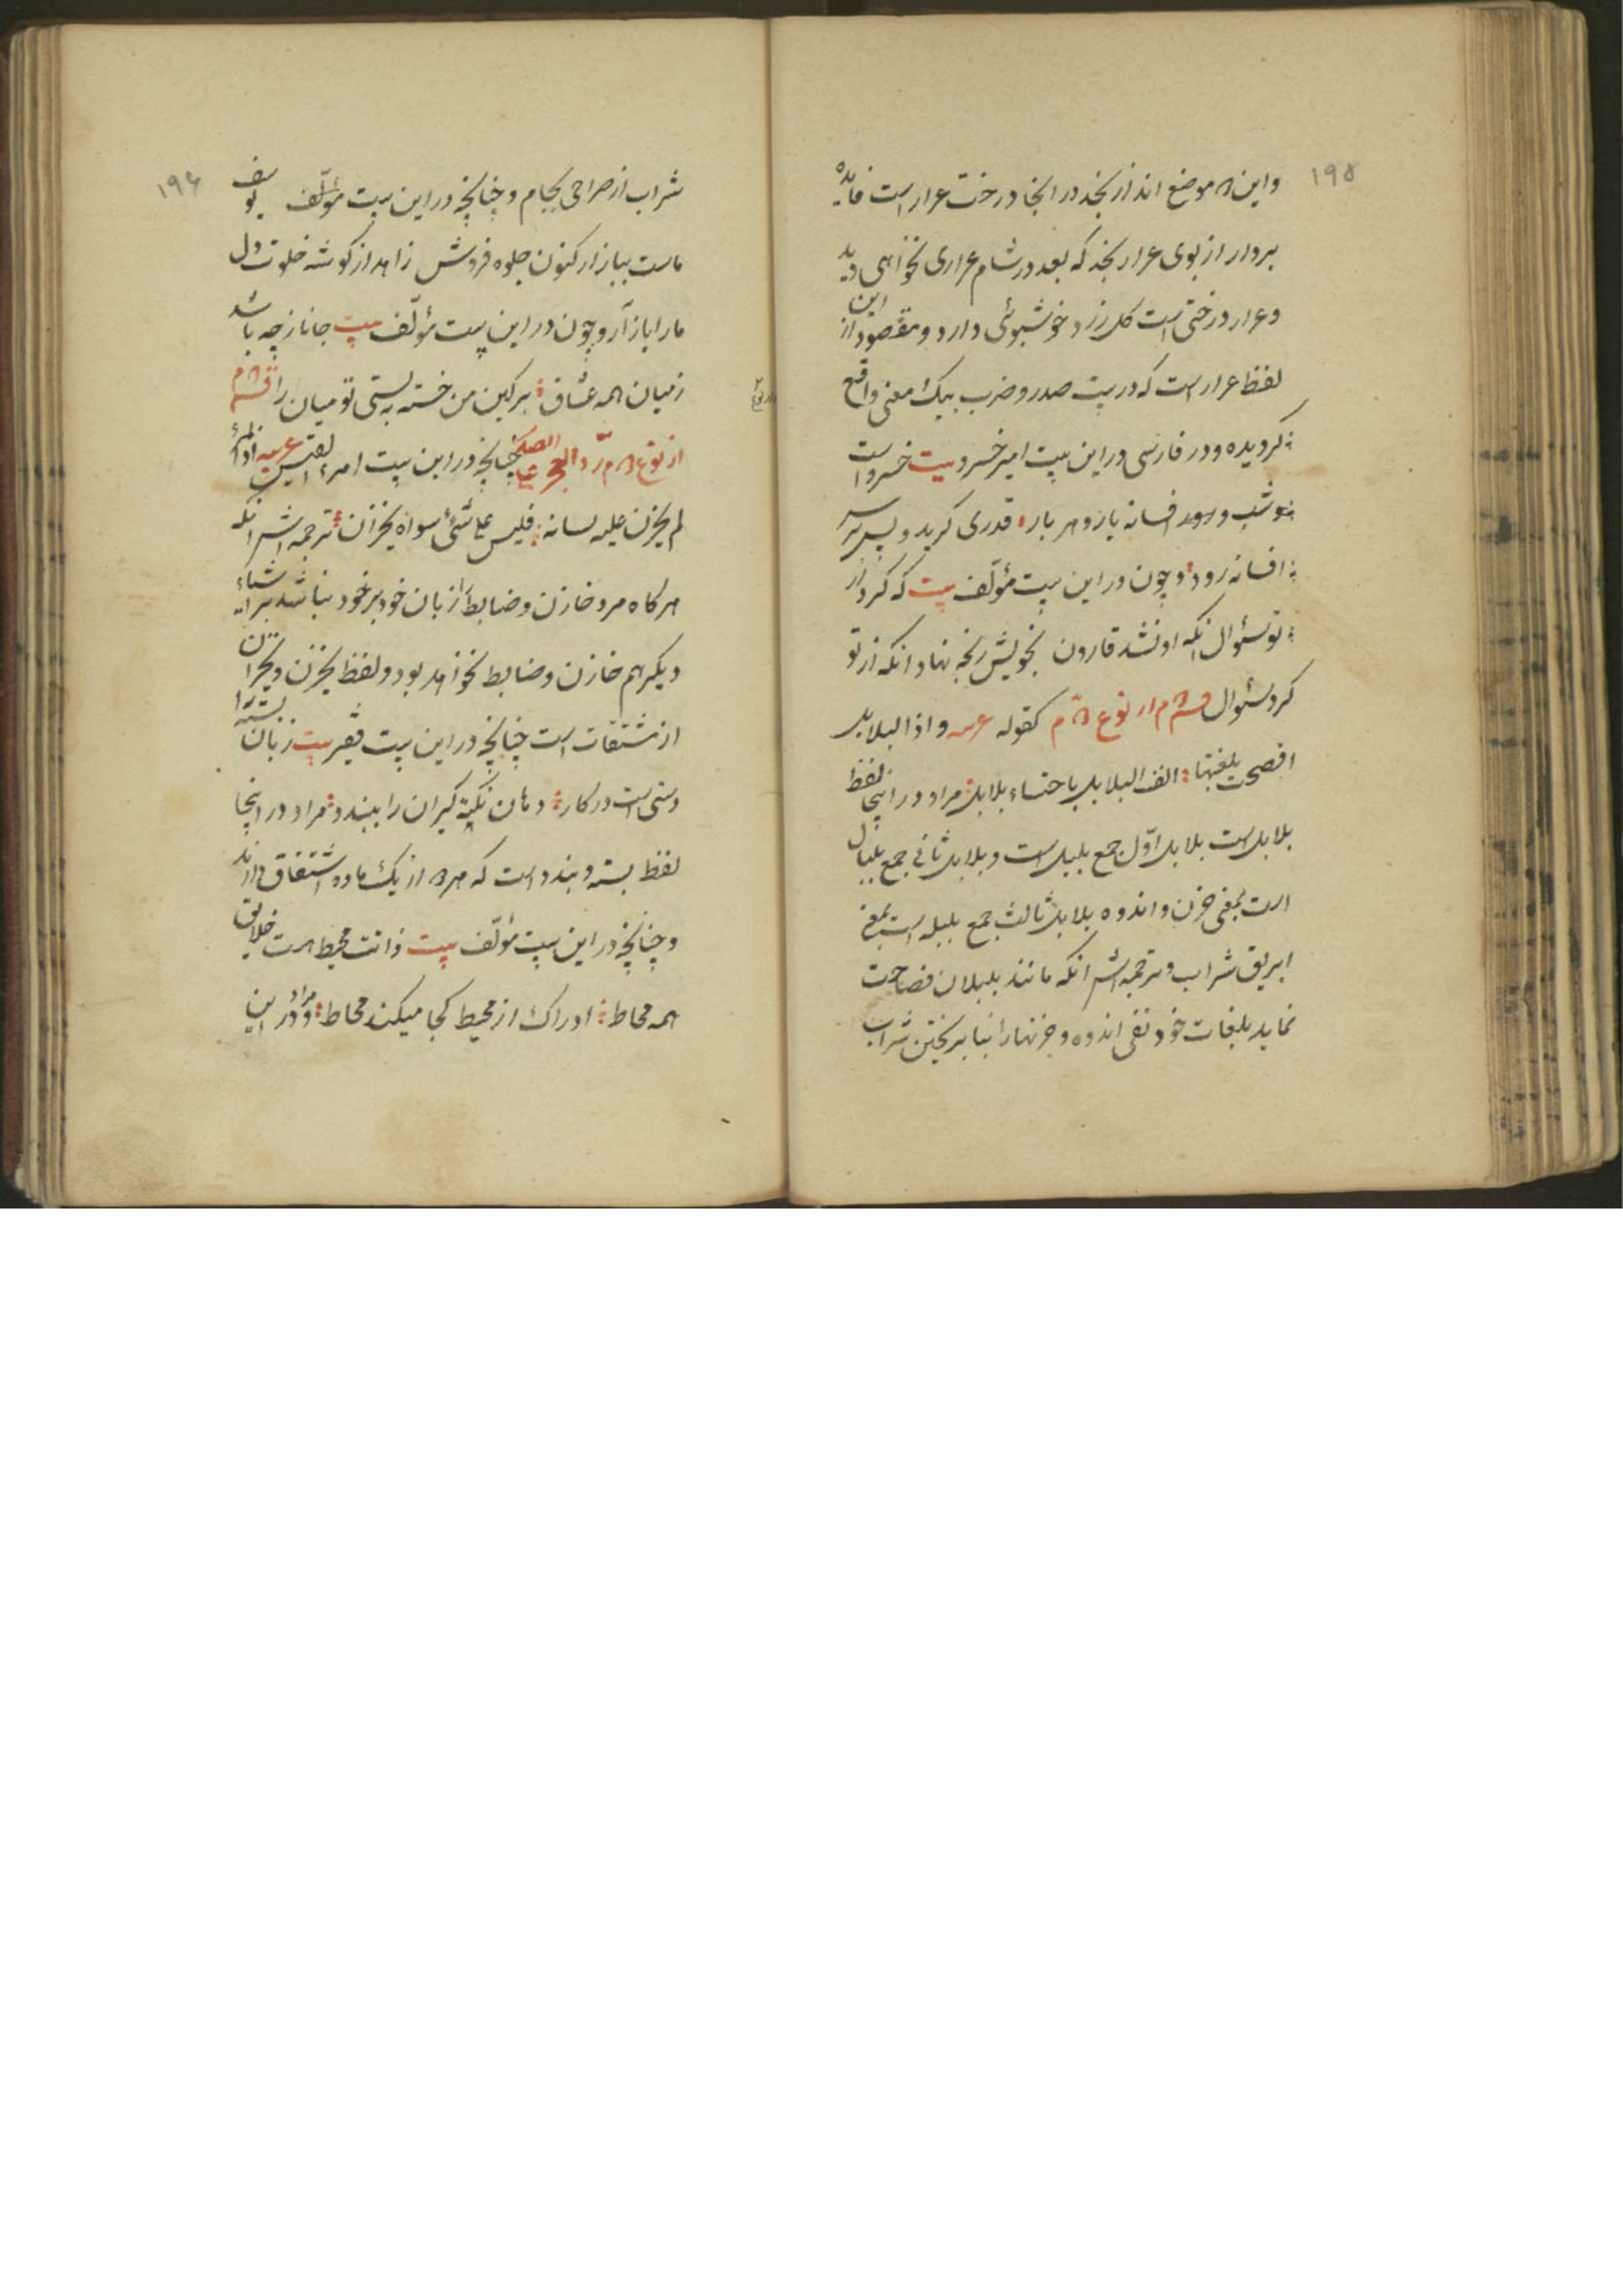 ۱۹۵
واین ۲ موضع اند از نجد در انجا درخت عرار است فایده
بردار از بوی عرار نجد که بعد در شام عراری نخواهی دید
و عرار درختی است کل زرد خوشبوئی دارد و مقصود از این
لفظ عرار است که در بیت صدر و ضرب بیک معنی واقع
کردیده و در فارسی در این بیت امیر خسرو بیت خسرو است
و شب و افسانه یار و هر بار قدری کرید و پس بر سر
افسانه رود و چون در این بیت مؤلّف بیت که کرد از
تو سئوال انکه او نشد قارون بخویش رنجه نهاد انکه از تو
کرد سئوال قسم از نوع ۲ م کقوله عربیه و اذا البلابل
افصحت بلغتها انف البلابل باحتساء بلابل مراد در اینجا لفظ
بلابل است بلابل اوّل جمع بلبل است و بلابل ثانی جمع بلبال
است بمعنی حزن و اندوه بلابل ثالث جمع بلبله است بمعنی
ابریق شراب و ترجمه اش انکه مانند بلبلان فصاحت
نماید بلغات خود نفی اندوه و حزنها را بنما بریختن شراب
۱۹۶
شراب از صراحی بجام و چنانچه در این بیت مؤلّف یوسف
ماست ببازار کنون جلوه فروش زاهد از کوشه خلوت دل
مارا باز آر و چون در این بیت مؤلّف بیت جانا ز چه باشد
ز میان همه عشاق بر کین من خسته به بستی تو میان را قسم
از نوع ۲ م ردّ العجز علی الصدر چنانچه در این بیت امرء القیس عربیه اذا المرء
لم یخزن علیه لسانه فلیس علی شیء سواه بخزّان ترجمه اش انکه
هر کاه مرد خازن و ضابط از زبان خود بر خود نباشد بر اشیاء
دیکر هم خازن و ضابط نخواهد بود و لفظ یخزن و بخزان
از مشتقات است چنانچه در این بیت فقیر بیت زبان بسته را
دستی است در کار دهان نکته کیران را ببندد مراد در اینجا
لفظ بسته و بندد است که هر ۲ از یک ماده اشتقاق دارند
و چنانچه در این بیت مؤلّف بیت ذاتت محیط هست خلایق
همه محاط ادراک از محیط کجا میکند محاط و مراد در این